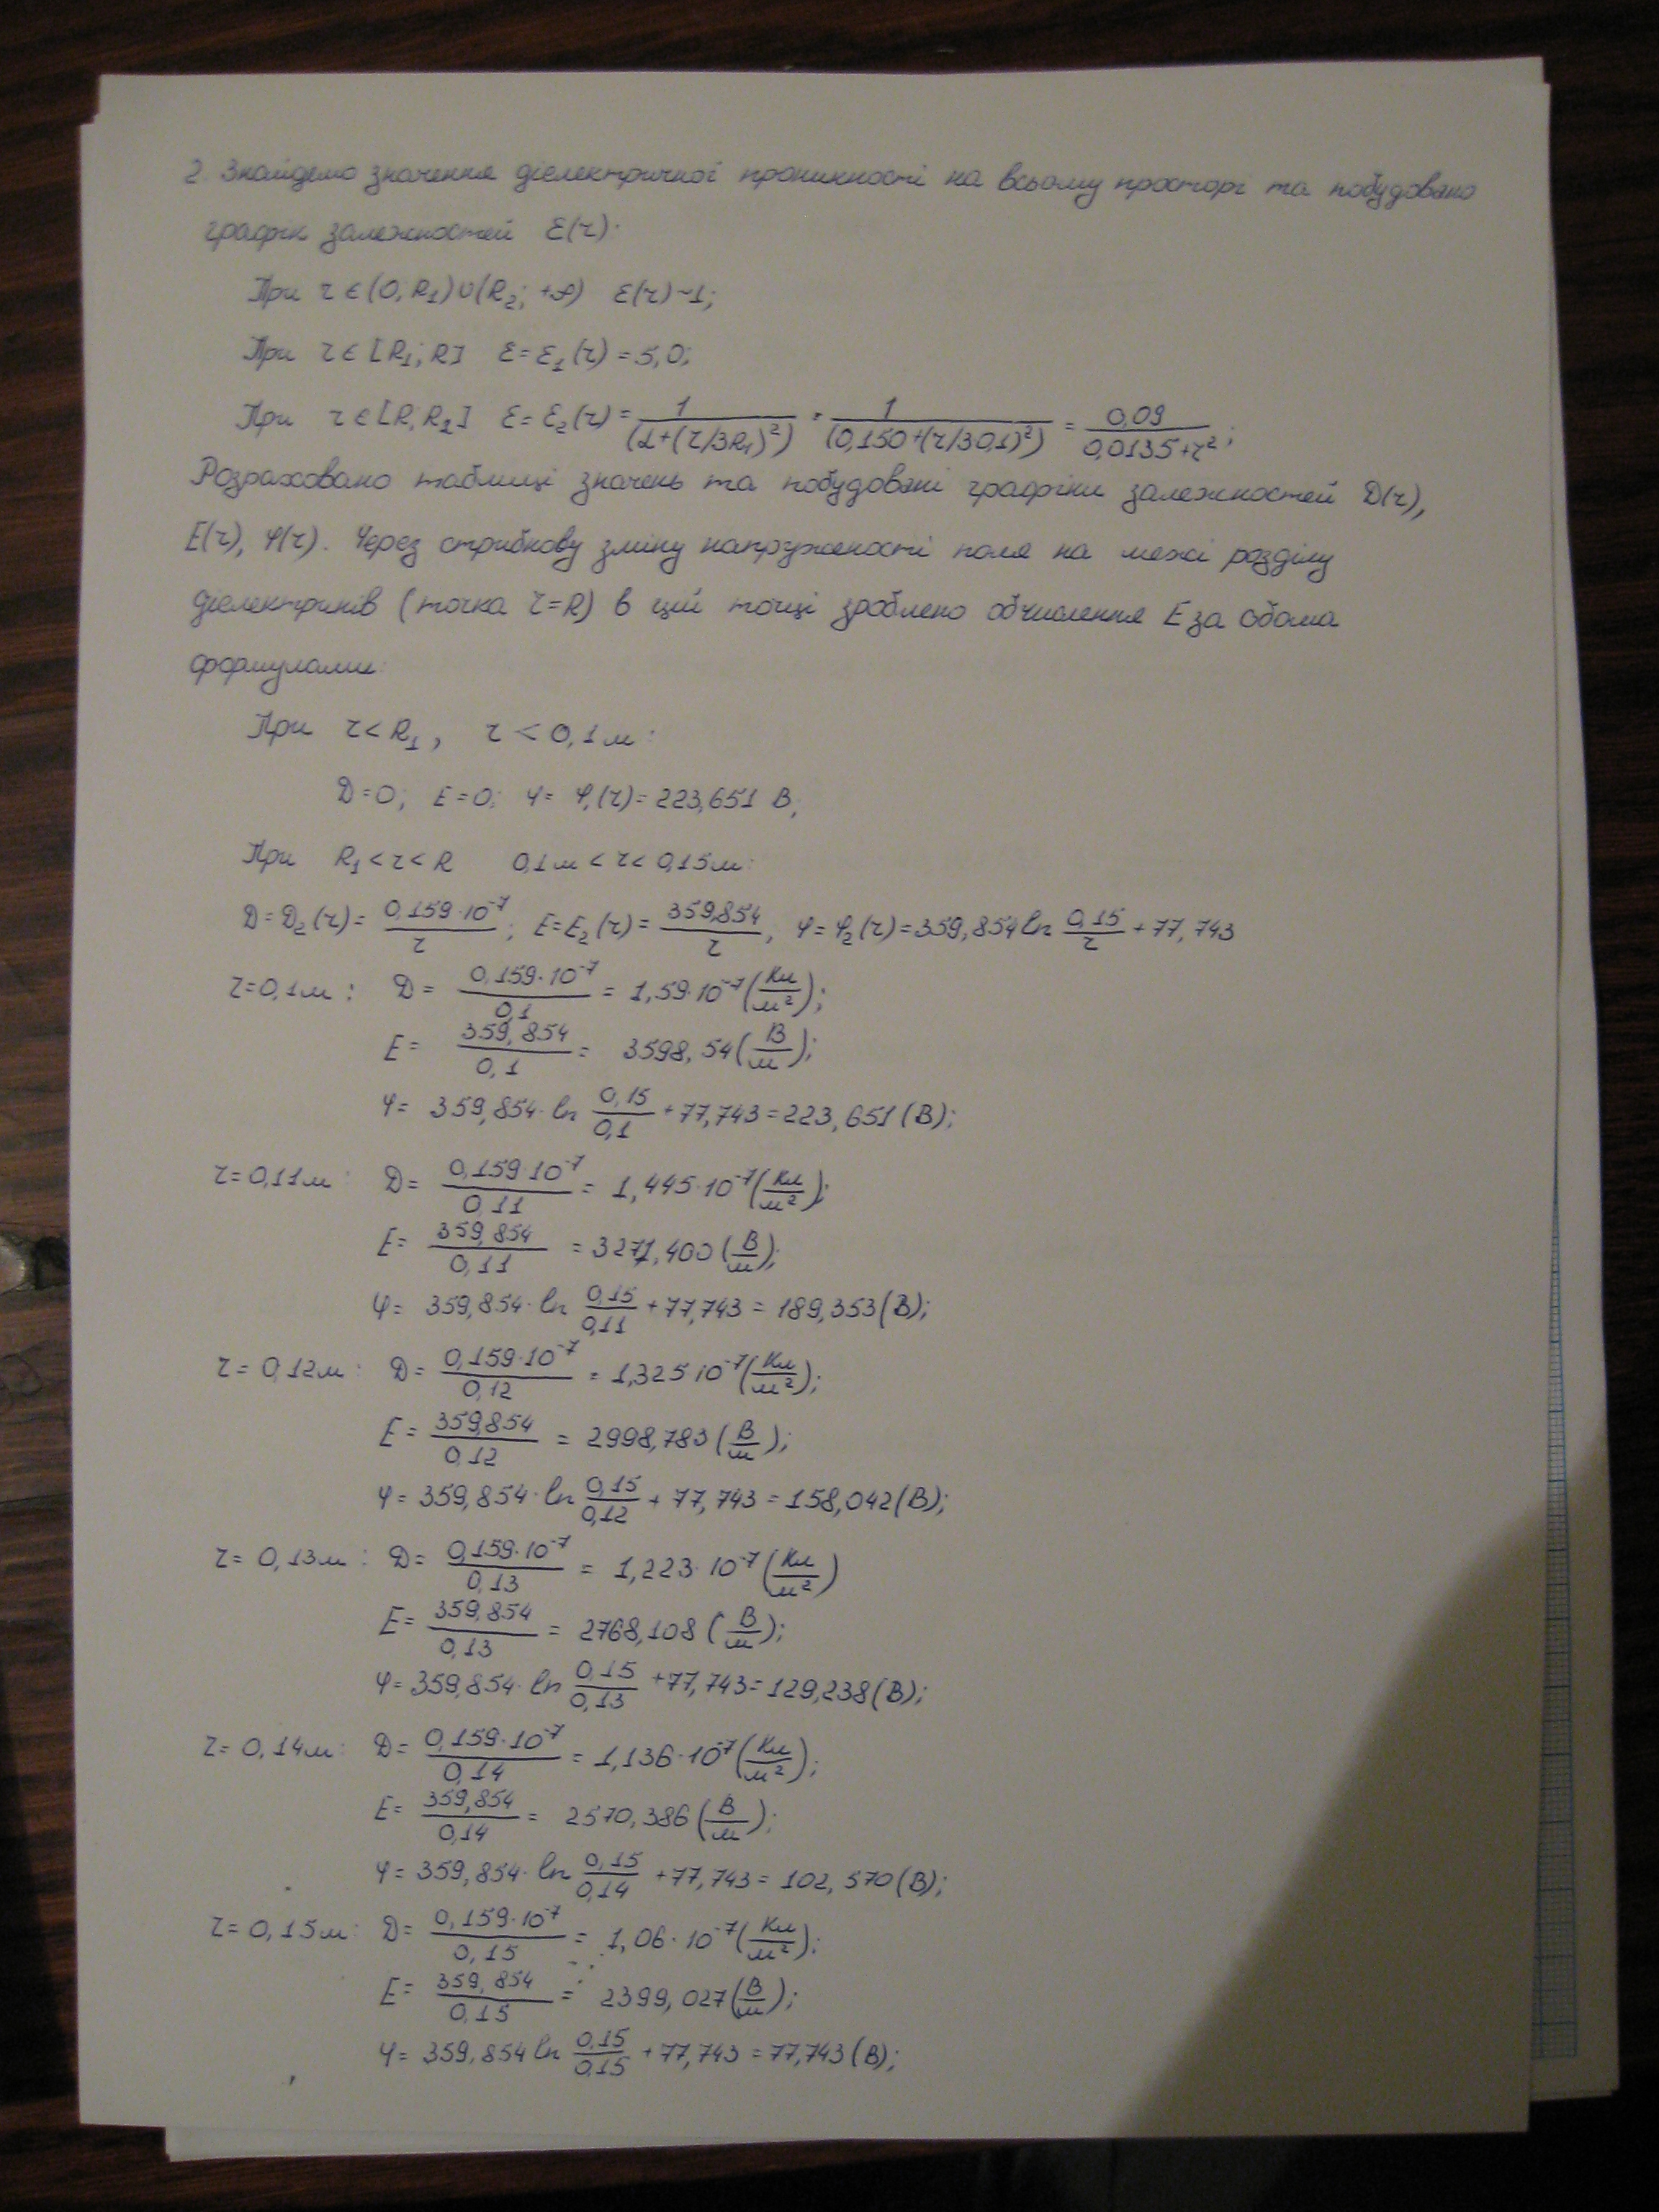 2. Знайдемо значення діелектричної проникності на всьому просторі та побудовано
графік залежностей ε(r).
При r ∈ (0, R₁)∪(R₂; +∞) ε(r)~1;
При r ∈ [R₁; R] ε = ε₁(r) = 5,0;
При r ∈ [R, R₂] ε = ε₂(r) = 1/(α+(r/3R₁)²) = 1/(0,150+(r/3·0,1)²) = 0,09/(0,0135+r²);
Розраховано таблиці значень та побудовані графіки залежностей D(r),
E(r), φ(r). Через стрибкову зміну напруженості поля на межі розділу
діелектриків (точка r=R) в цій точці зроблено обчислення E за обома
формулами:
При r < R₁, r < 0,1 м:
D=0; E=0; φ= φ₁(r) = 223,651 В;
При R₁ < r < R 0,1 м < r < 0,15 м:
D=D₂(r) = 0,159·10⁻⁷/r; E=E₂(r) = 359,854/r, φ=φ₂(r) = 359,854 ln 0,15/r + 77,743
r=0,1 м: D = 0,159·10⁻⁷/0,1 = 1,59·10⁻⁷ (Кл/м²);
E = 359,854/0,1 = 3598,54 (В/м);
φ = 359,854·ln 0,15/0,1 + 77,743 = 223,651 (В);
r=0,11 м: D = 0,159·10⁻⁷/0,11 = 1,445·10⁻⁷ (Кл/м²);
E = 359,854/0,11 = 3271,400 (В/м);
φ = 359,854·ln 0,15/0,11 + 77,743 = 189,353 (В);
r = 0,12 м: D = 0,159·10⁻⁷/0,12 = 1,325·10⁻⁷ (Кл/м²);
E = 359,854/0,12 = 2998,783 (В/м);
φ = 359,854·ln 0,15/0,12 + 77,743 = 158,042 (В);
r = 0,13 м: D = 0,159·10⁻⁷/0,13 = 1,223·10⁻⁷ (Кл/м²)
E = 359,854/0,13 = 2768,108 (В/м);
φ = 359,854·ln 0,15/0,13 + 77,743 = 129,238 (В);
r = 0,14 м: D = 0,159·10⁻⁷/0,14 = 1,136·10⁻⁷ (Кл/м²);
E = 359,854/0,14 = 2570,386 (В/м);
φ = 359,854·ln 0,15/0,14 + 77,743 = 102,570 (В);
r = 0,15 м: D = 0,159·10⁻⁷/0,15 = 1,06·10⁻⁷ (Кл/м²);
E = 359,854/0,15 = 2399,027 (В/м);
φ = 359,854 ln 0,15/0,15 + 77,743 = 77,743 (В);